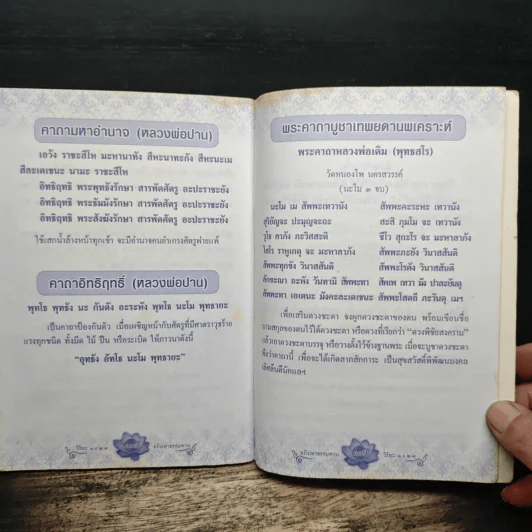 คาถามหาอำนาจ (หลวงพ่อปาน)
เอวัง ราชะสีโห มะหานาทัง สีหะนาทะกัง สีหะนะเม
สีละเตเชนะ นามะ ราชะสีโห
อิทธิฤทธิ พระพุทธังรักษา สารพัดศัตรู อะปะราชะยัง
อิทธิฤทธิ พระธัมมังรักษา สารพัดศัตรู อะปะราชะยัง
อิทธิฤทธิ พระสังฆังรักษา สารพัดศัตรู อะปะราชะยัง
ใช้เสกน้ำล้างหน้าทุกเช้า จะมีอำนาจคนยำเกรงศัตรูพ่ายแพ้
คาถาอิทธิฤทธิ์ (หลวงพ่อปาน)
พุทโธ พุทธัง นะ กันตัง อะระหัง พุทโธ นะโม พุทธายะ
เป็นคาถาป้องกันตัว เมื่อเผชิญหน้ากับศัตรูที่มีศาตราวุธร้าย
แรงทุกชนิด ทั้งมีด ไม้ ปืน หรือระเบิด ให้ภาวนาดังนี้
"อุทธัง อัทโธ นะโม พุทธายะ"
พระคาถาบูชาเทพยดานพเคราะห์
พระคาถาหลวงพ่อเดิม (พุทธสโร)
วัดหนองโพ นครสวรรค์
(นะโม ๓ จบ)
นะโม เม สัพพะเทวานัง สัพพะคะระหะ เทวานัง
สุริยัญจะ ปะมุญจะถะ สะสิ ภุมโม จะ เทวานัง
วุโธ ลาภัง ภะวิสสะติ ชีโว สุกะโร จะ มะหาลาภัง
โสโร ราหูเกตู จะ มะหาลาภัง สัพพะภะยัง วินาสสันติ
สัพพะทุกขัง วินาสสันติ สัพพะโรคัง วินาสสันติ
ลักขะณา อะหัง วันทามิ สัพพะทา สัพเพ เทวา มัง ปาละยันตุ
สัพพะทา เอเตนะ มังคะละเตเชนะ สัพพะโสตถี ภะวันตุ เมฯ
เพื่อเสริมดวงชะตา จงผูกดวงชะตาของตน พร้อมเขียนชื่อ
แล้วเอาดวงชะตาบรรจุ หรือวางตั้งไว้ข้างฐานพระ เมื่อจะบูชาดวงชะตา
จึงว่าคาถานี้ เพื่อจะได้เกิดลาภสักการะ เป็นสุขสวัสดิ์พิพัฒนมงคล